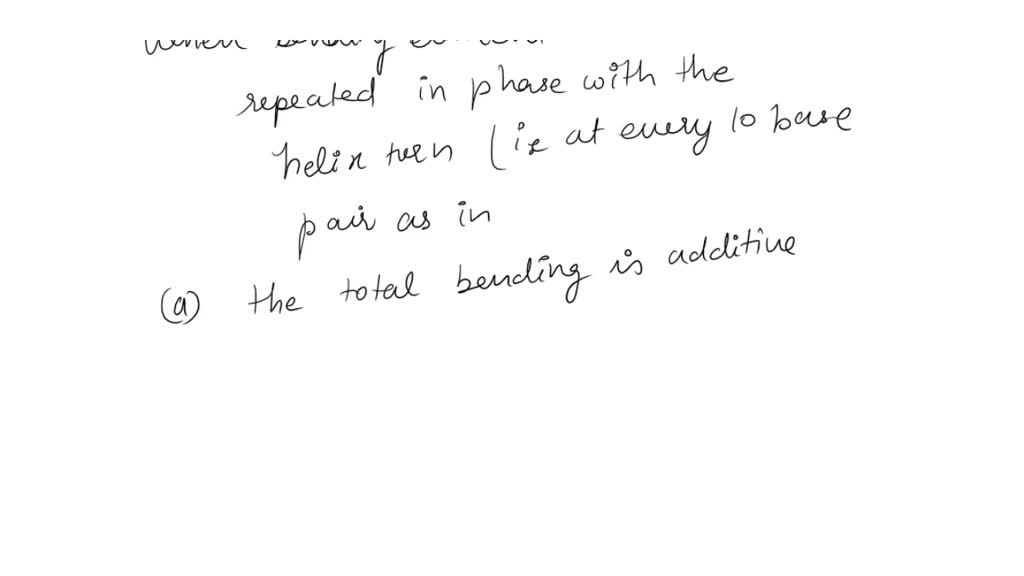 repeated in phase with the
helix turn (ie at every 10 base
pair as in
(a) the total bending is additive